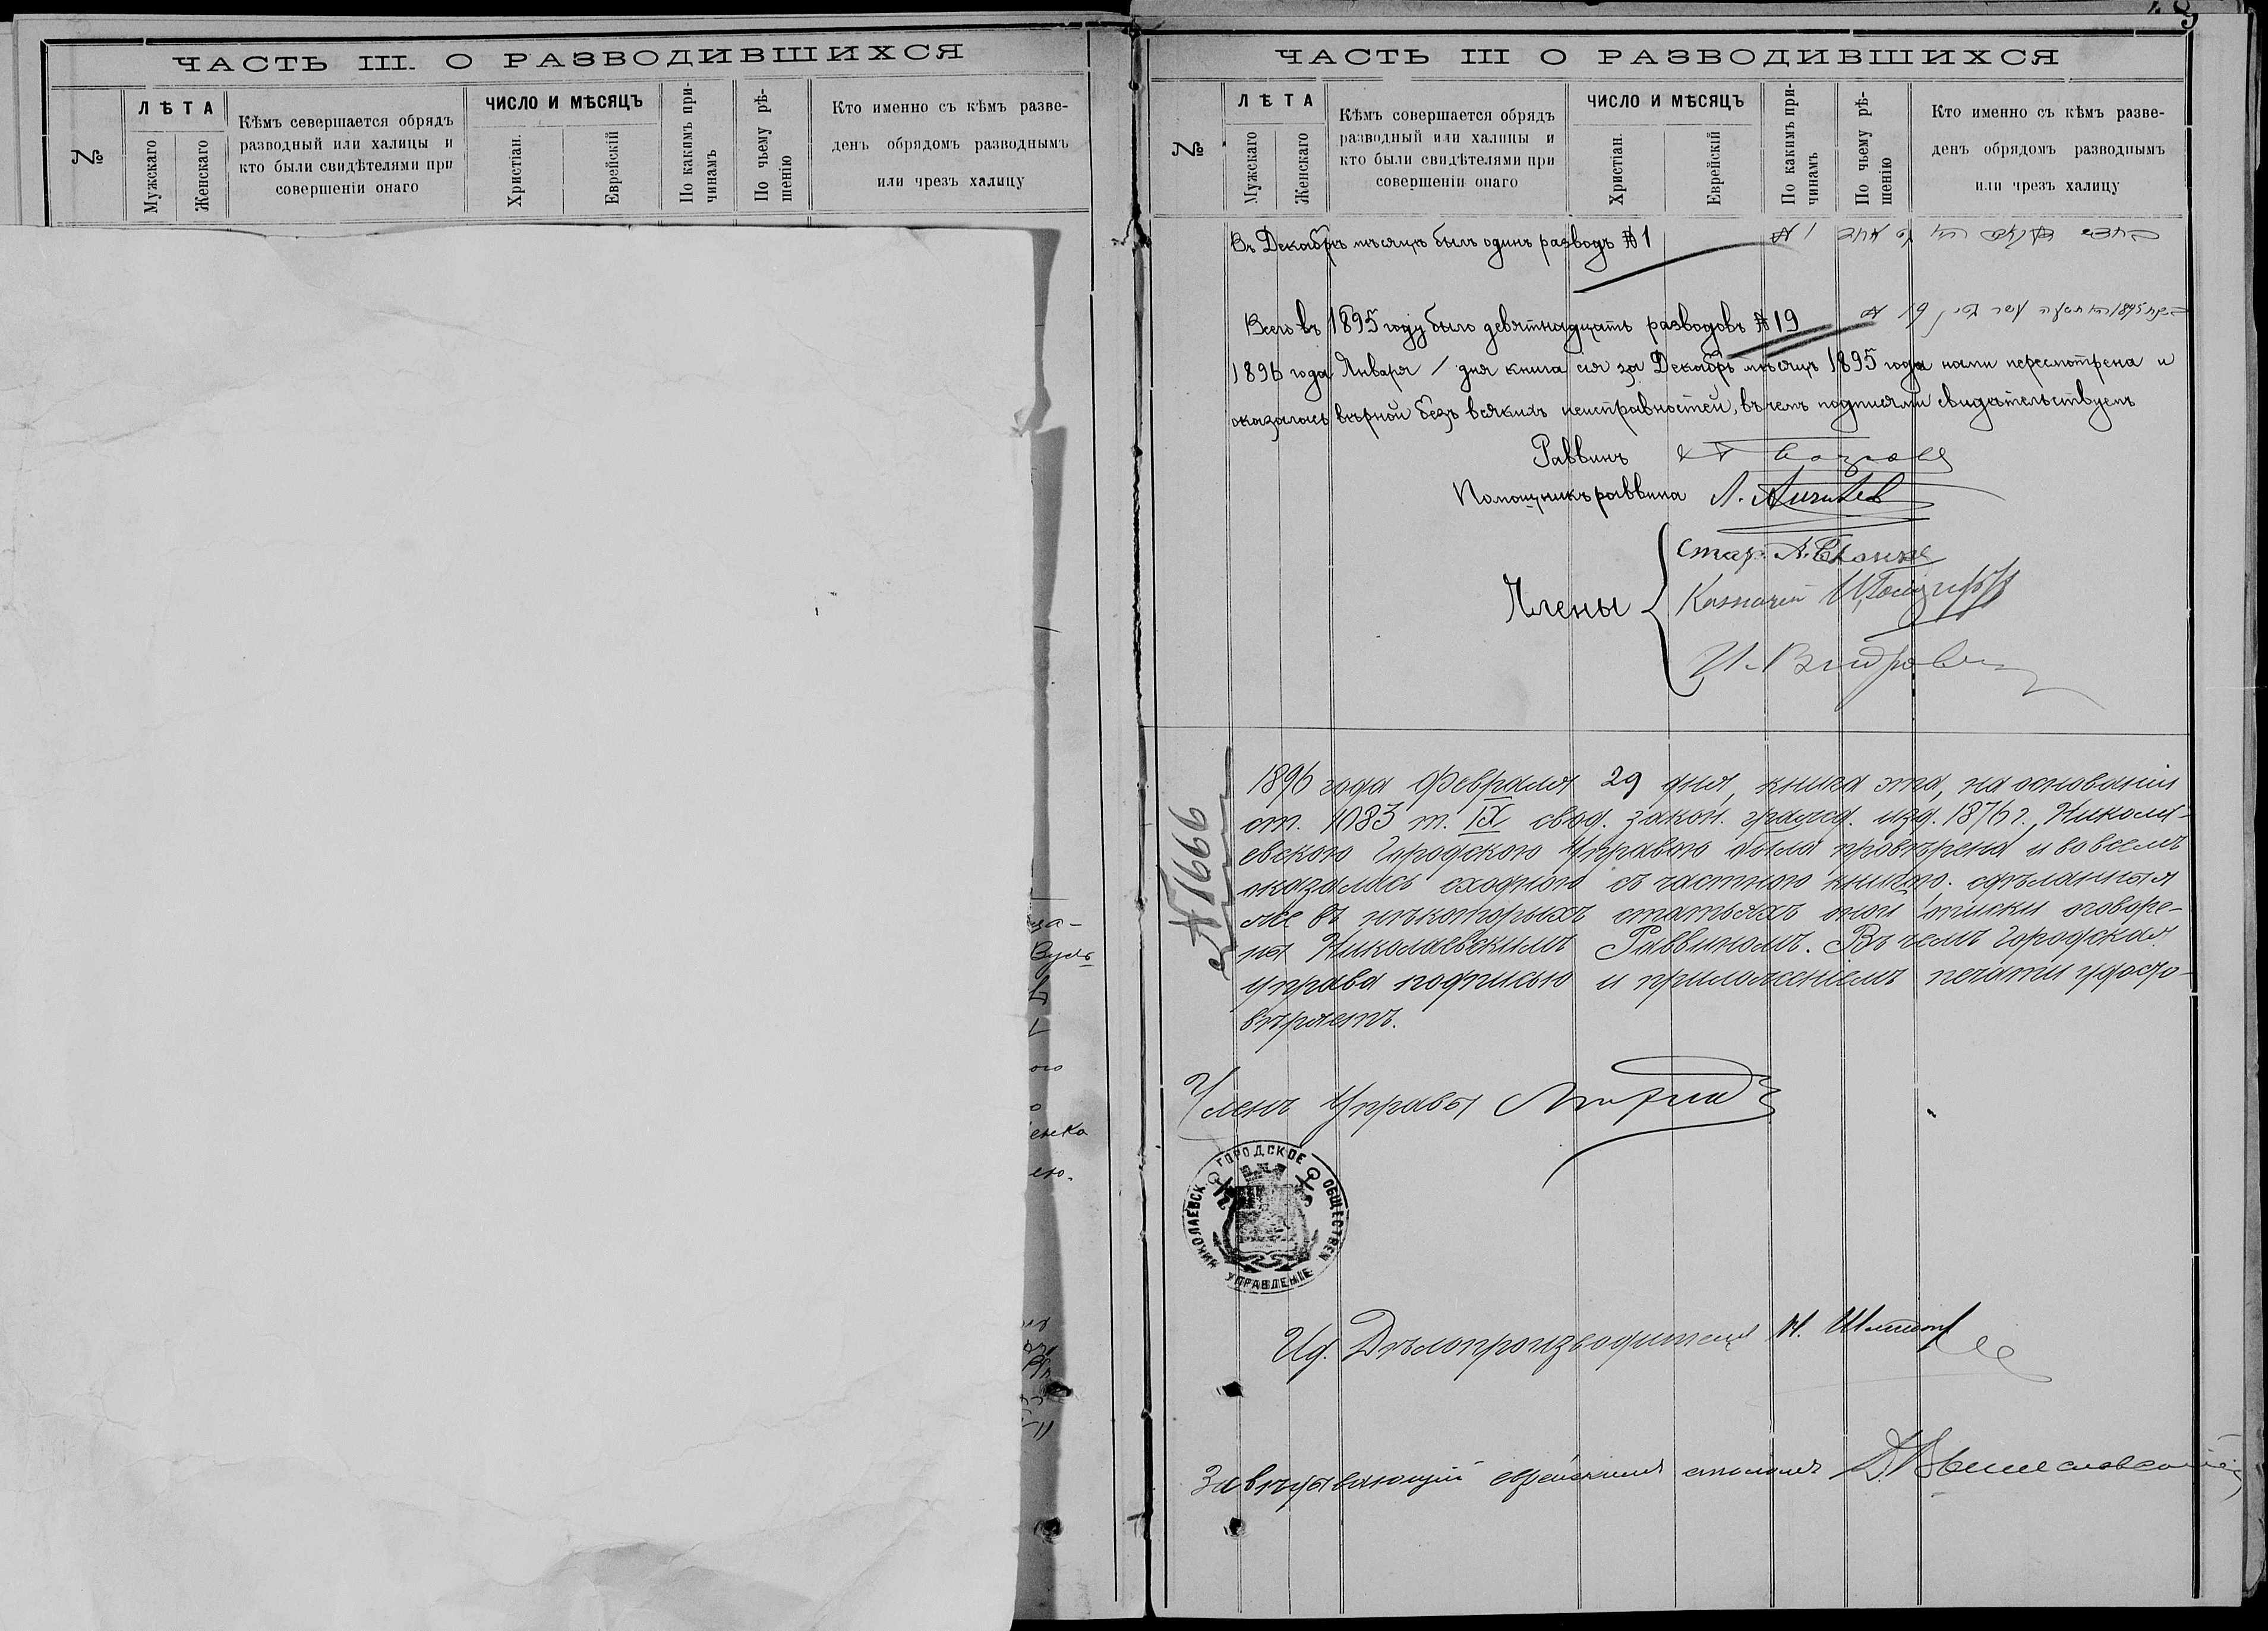 ЧАСТЬ III. О РАЗВОДИВШИХСЯ
№
ЛѢТА
Мужскаго
Женскаго
Кѣмъ севершается обрядъ
разводный или халицы и
кто были свидѣтелями при
совершеніи онаго
ЧИСЛО И МѢСЯЦЪ
Христіан.
Еврейскій
По какимъ при-
чинамъ
По чьему рѣ-
шенію
Кто именно съ кѣмъ разве-
денъ обрядомъ разводнымъ
или чрезъ халицу
ЧАСТЬ III О РАЗВОДИВШИХСЯ
№
ЛѢТА
Мужскаго
Женскаго
Кѣмъ совершается обрядъ
разводный или халицы и
кто были свидѣтелями при
совершеніи онаго
ЧИСЛО И МѢСЯЦЪ
Христіан.
Еврейскій
По какимъ при-
чинамъ
По чьему рѣ-
шенію
Кто именно съ кѣмъ разве-
денъ обрядомъ разводнымъ
или чрезъ халицу
Въ Декабрѣ мѣсяцѣ былъ одинъ разводъ № 1
Всего въ 1895 году было девятнадцать разводовъ № 19
1896 года Января 1 дня книга сія за Декабрь мѣсяцъ 1895 года нами пересмотрена и
оказалась вѣрной безъ всякихъ неисправностей, въ чемъ подписями свидѣтельствуемъ
Раввинъ
Помощникъ раввина Л.
Члены
Стар. А.
Казначей
И.
№ 1666
1896 года Февраля 29 дня, книга эта, на основаніи
ст. 1083 т. IX свод. закон. гражд. изд. 1876 г. Никола-
евскою Городскою Управою была провѣрена и во всемъ
оказалась сходною съ частною книгою. сдѣланныя
же въ нѣкоторыхъ статьяхъ оной описки оговоре-
ны Николаевскимъ Раввиномъ. Въ чемъ Городская
управа подписью и приложеніемъ печати удосто-
вѣряетъ.
Членъ Управы
НИКОЛАЕВСК. ГОРОДСКОЕ ОБЩЕСТВЕН. УПРАВЛЕНІЕ
Ид. Дѣлопроизводителя Н.
Завѣдывающій еврейскимъ столомъ